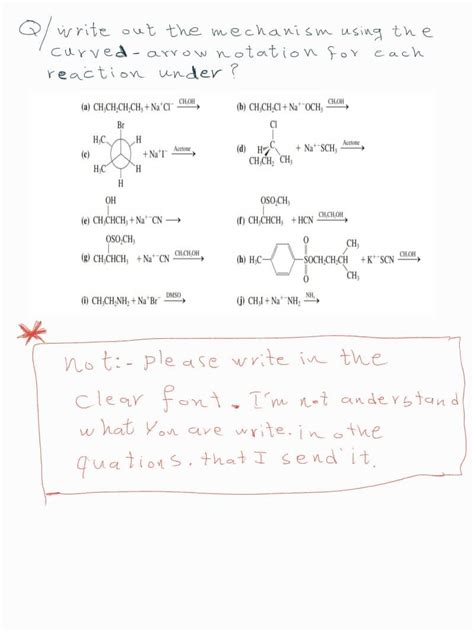 Q/ write out the mechanism using the
curved-arrow notation for each
reaction under?
(a) CH₃CH₂CH₂CH₃ + Na⁺Cl⁻ CH₃OH
(b) CH₃CH₂Cl + Na⁺ ⁻OCH₃ CH₃OH
Br
H₃C H
(c) + Na⁺I⁻ Acetone
H₃C H
H
Cl
(d) H C + Na⁺ ⁻SCH₃ Acetone
CH₃CH₂ CH₃
OH
(e) CH₃CHCH₃ + Na⁺ ⁻CN
OSO₂CH₃
(f) CH₃CHCH₃ + HCN CH₃CH₂OH
OSO₂CH₃
(g) CH₃CHCH₃ + Na⁺ ⁻CN CH₃CH₂OH
O CH₃
(h) H₃C SOCH₂CH₂CH + K⁺ ⁻SCN CH₃OH
O CH₃
(i) CH₃CH₂NH₂ + Na⁺Br⁻ DMSO
(j) CH₃I + Na⁺ ⁻NH₂ NH₃
not:- please write in the
clear font. I'm not anderstand
what you are write. in othe
quations. that I send it.